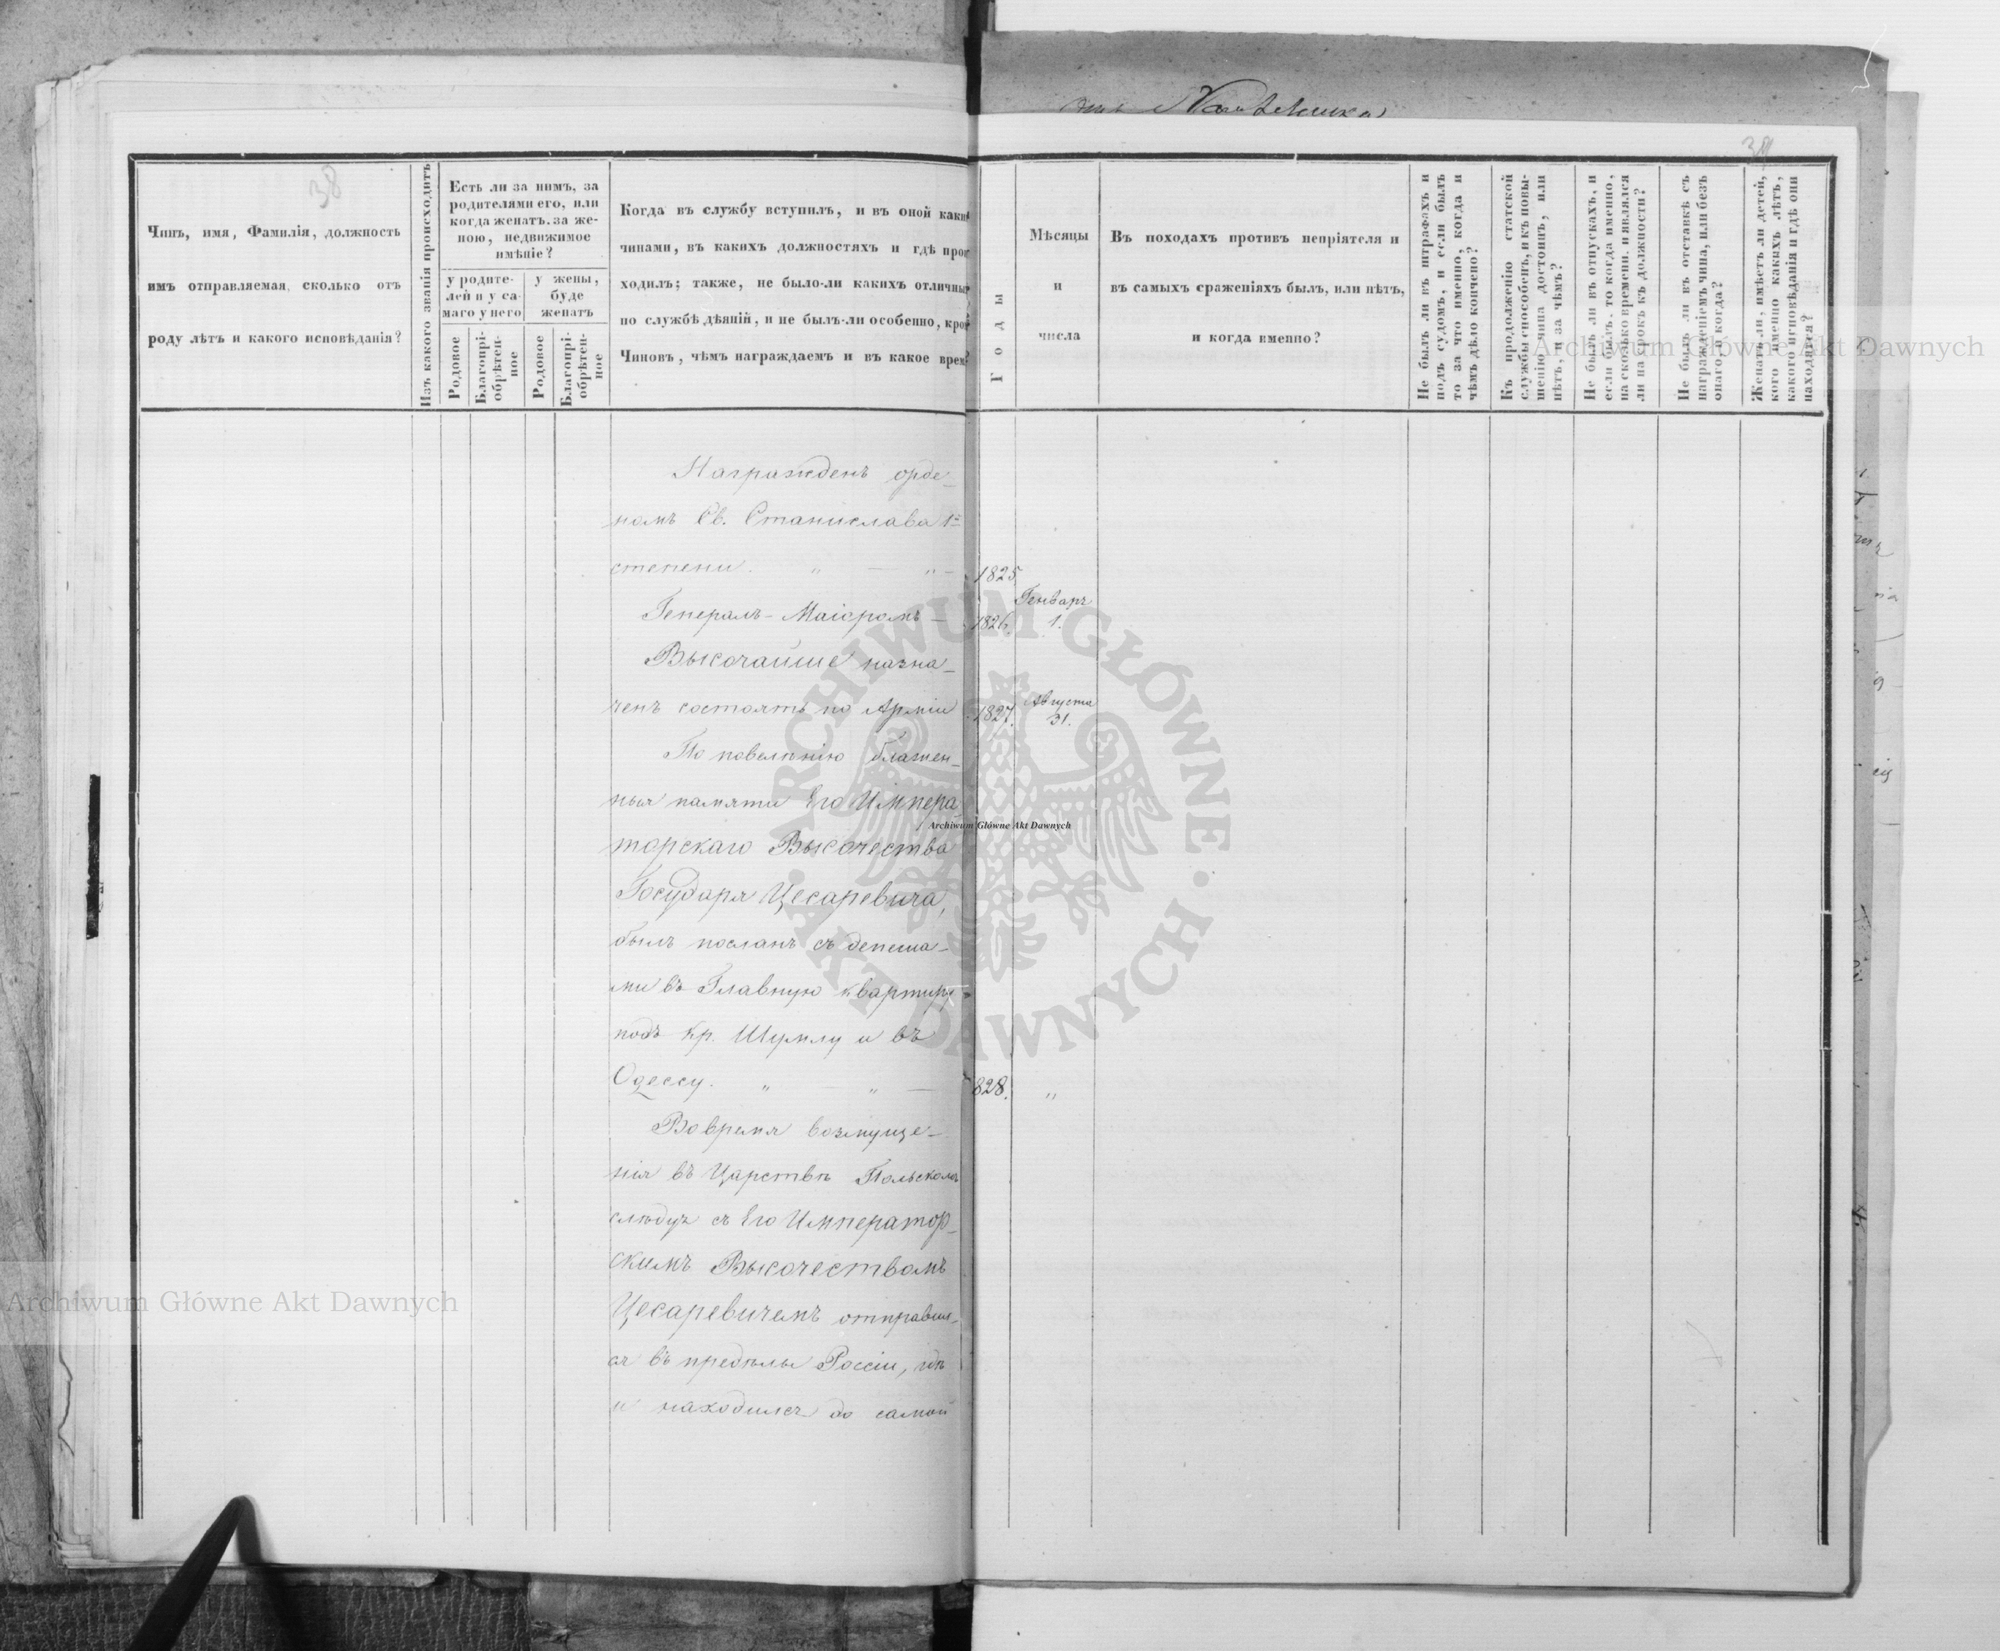 38
38
Чинъ, имя, Фамилія, должность
имъ отправляемая, сколько отъ
роду лѣтъ и какого исповѣданія?
Изъ какого званія происходитъ
Есть ли за нимъ, за
родителями его, или
когда женатъ. за же-
ною, недвижимое
имѣніе?
у родите-
лей и у са-
маго у него
у жены,
буде
женатъ
Родовое
Благопрі-
обрѣтен-
ное
Родовое
Благопрі-
обрѣтен-
ное
Когда въ службу вступилъ, и въ оной каки
чинами, въ какихъ должностяхъ и гдѣ прои
ходилъ; также, не было-ли какихъ отличны
по службѣ дѣяній, и не былъ-ли особенно, кро
Чиновъ, чѣмъ награждаемъ и въ какое врем
Годы
Мѣсяцы
и
числа
Въ походахъ противъ непріятеля и
въ самыхъ сраженіяхъ былъ, или нѣтъ,
и когда именно?
Не былъ ли въ штрафахъ и
подъ судомъ, и если былъ
то за что именно, когда и
чѣмъ дѣло кончено?
Къ продолженію статской
службы способенъ, и къ повы-
шенію чина достоинъ, или
нѣтъ, и за чѣмъ?
Не былъ ли въ отпускахъ, и
если былъ. то когда именно,
на сколько времени. и явился
ли на срокъ къ должности?
Не былъ ли въ отставкѣ съ
награжденіемъ чина, или безъ
онаго и когда?
Женатъ ли, имѣетъ ли детей,
кого именно какихъ лѣтъ,
какого исповѣданія и гдѣ они
находятся?
Награжденъ орде-
номъ Св. Станислава 1й
степени. " — " — 1825.
Генералъ-Маіоромъ — 1826. Генваря 1.
Высочайше назна-
ченъ состоять по Арміи 1827. Августа 31.
По повелѣнію блажен-
ныя памяти Его Импера-
торскаго Высочества
Государя Цесаревича,
былъ посланъ съ депеша-
ми въ Главную квартиру
подъ кр. Шумлу и въ
Одессу. " — " — 828. "
Вовремя возмуще-
нія въ Царствѣ Польскомъ
слѣдуя съ Его Император-
скимъ Высочествомъ
Цесаревичемъ отправил-
ся въ предѣлы Россіи, гдѣ
и находился до самой
Archiwum Główne Akt Dawnych
Archiwum Główne Akt Dawnych
Archiwum Główne Akt Dawnych
ARCHIWUM GŁÓWNE · AKT DAWNYCH ·